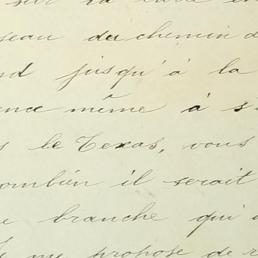 sur la
seau du chemin d
nd jusqu'à la
ence même à s
s le Texas, vous
combien il serait
e branche qui
me propose de r